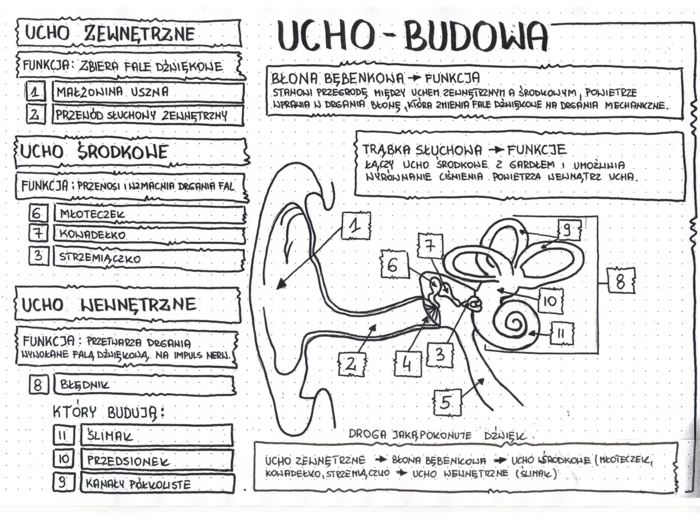 UCHO ZEWNĘTRZNE
FUNKCJA: ZBIERA FALE DŹWIĘKOWE
1 MAŁŻOWINA USZNA
2 PRZEWÓD SŁUCHOWY ZEWNĘTRZNY
UCHO ŚRODKOWE
FUNKCJA: PRZENOSI I WZMACNIA DRGANIA FAL
6 MŁOTECZEK
7 KOWADEŁKO
3 STRZEMIĄCZKO
UCHO WEWNĘTRZNE
FUNKCJA: PRZETWARZA DRGANIA
WYWOŁANE FALĄ DŹWIĘKOWĄ, NA IMPULS NERW.
8 BŁĘDNIK
KTÓRY BUDUJĄ:
11 ŚLIMAK
10 PRZEDSIONEK
9 KANAŁY PÓŁKOLISTE
UCHO-BUDOWA
BŁONA BĘBENKOWA → FUNKCJA
STANOWI PRZEGRODĘ MIĘDZY UCHEM ZEWNĘTRZNYM A ŚRODKOWYM, POWIETRZE
WPRAWIA W DRGANIA BŁONĘ, KTÓRA ZMIENIA FALE DŹWIĘKOWE NA DRGANIA MECHANICZNE.
TRĄBKA SŁUCHOWA → FUNKCJE
ŁĄCZY UCHO ŚRODKOWE Z GARDŁEM I UMOŻLIWIA
WYRÓWNANIE CIŚNIENIA POWIETRZA WEWNĄTRZ UCHA.
1
7
9
6
8
10
11
2
4
3
5
DROGA JAKĄ POKONUJE DŹWIĘK
UCHO ZEWNĘTRZNE → BŁONA BĘBENKOWA → UCHO ŚRODKOWE (MŁOTECZEK,
KOWADEŁKO, STRZEMIĄCZKO → UCHO WEWNĘTRZNE (ŚLIMAK)